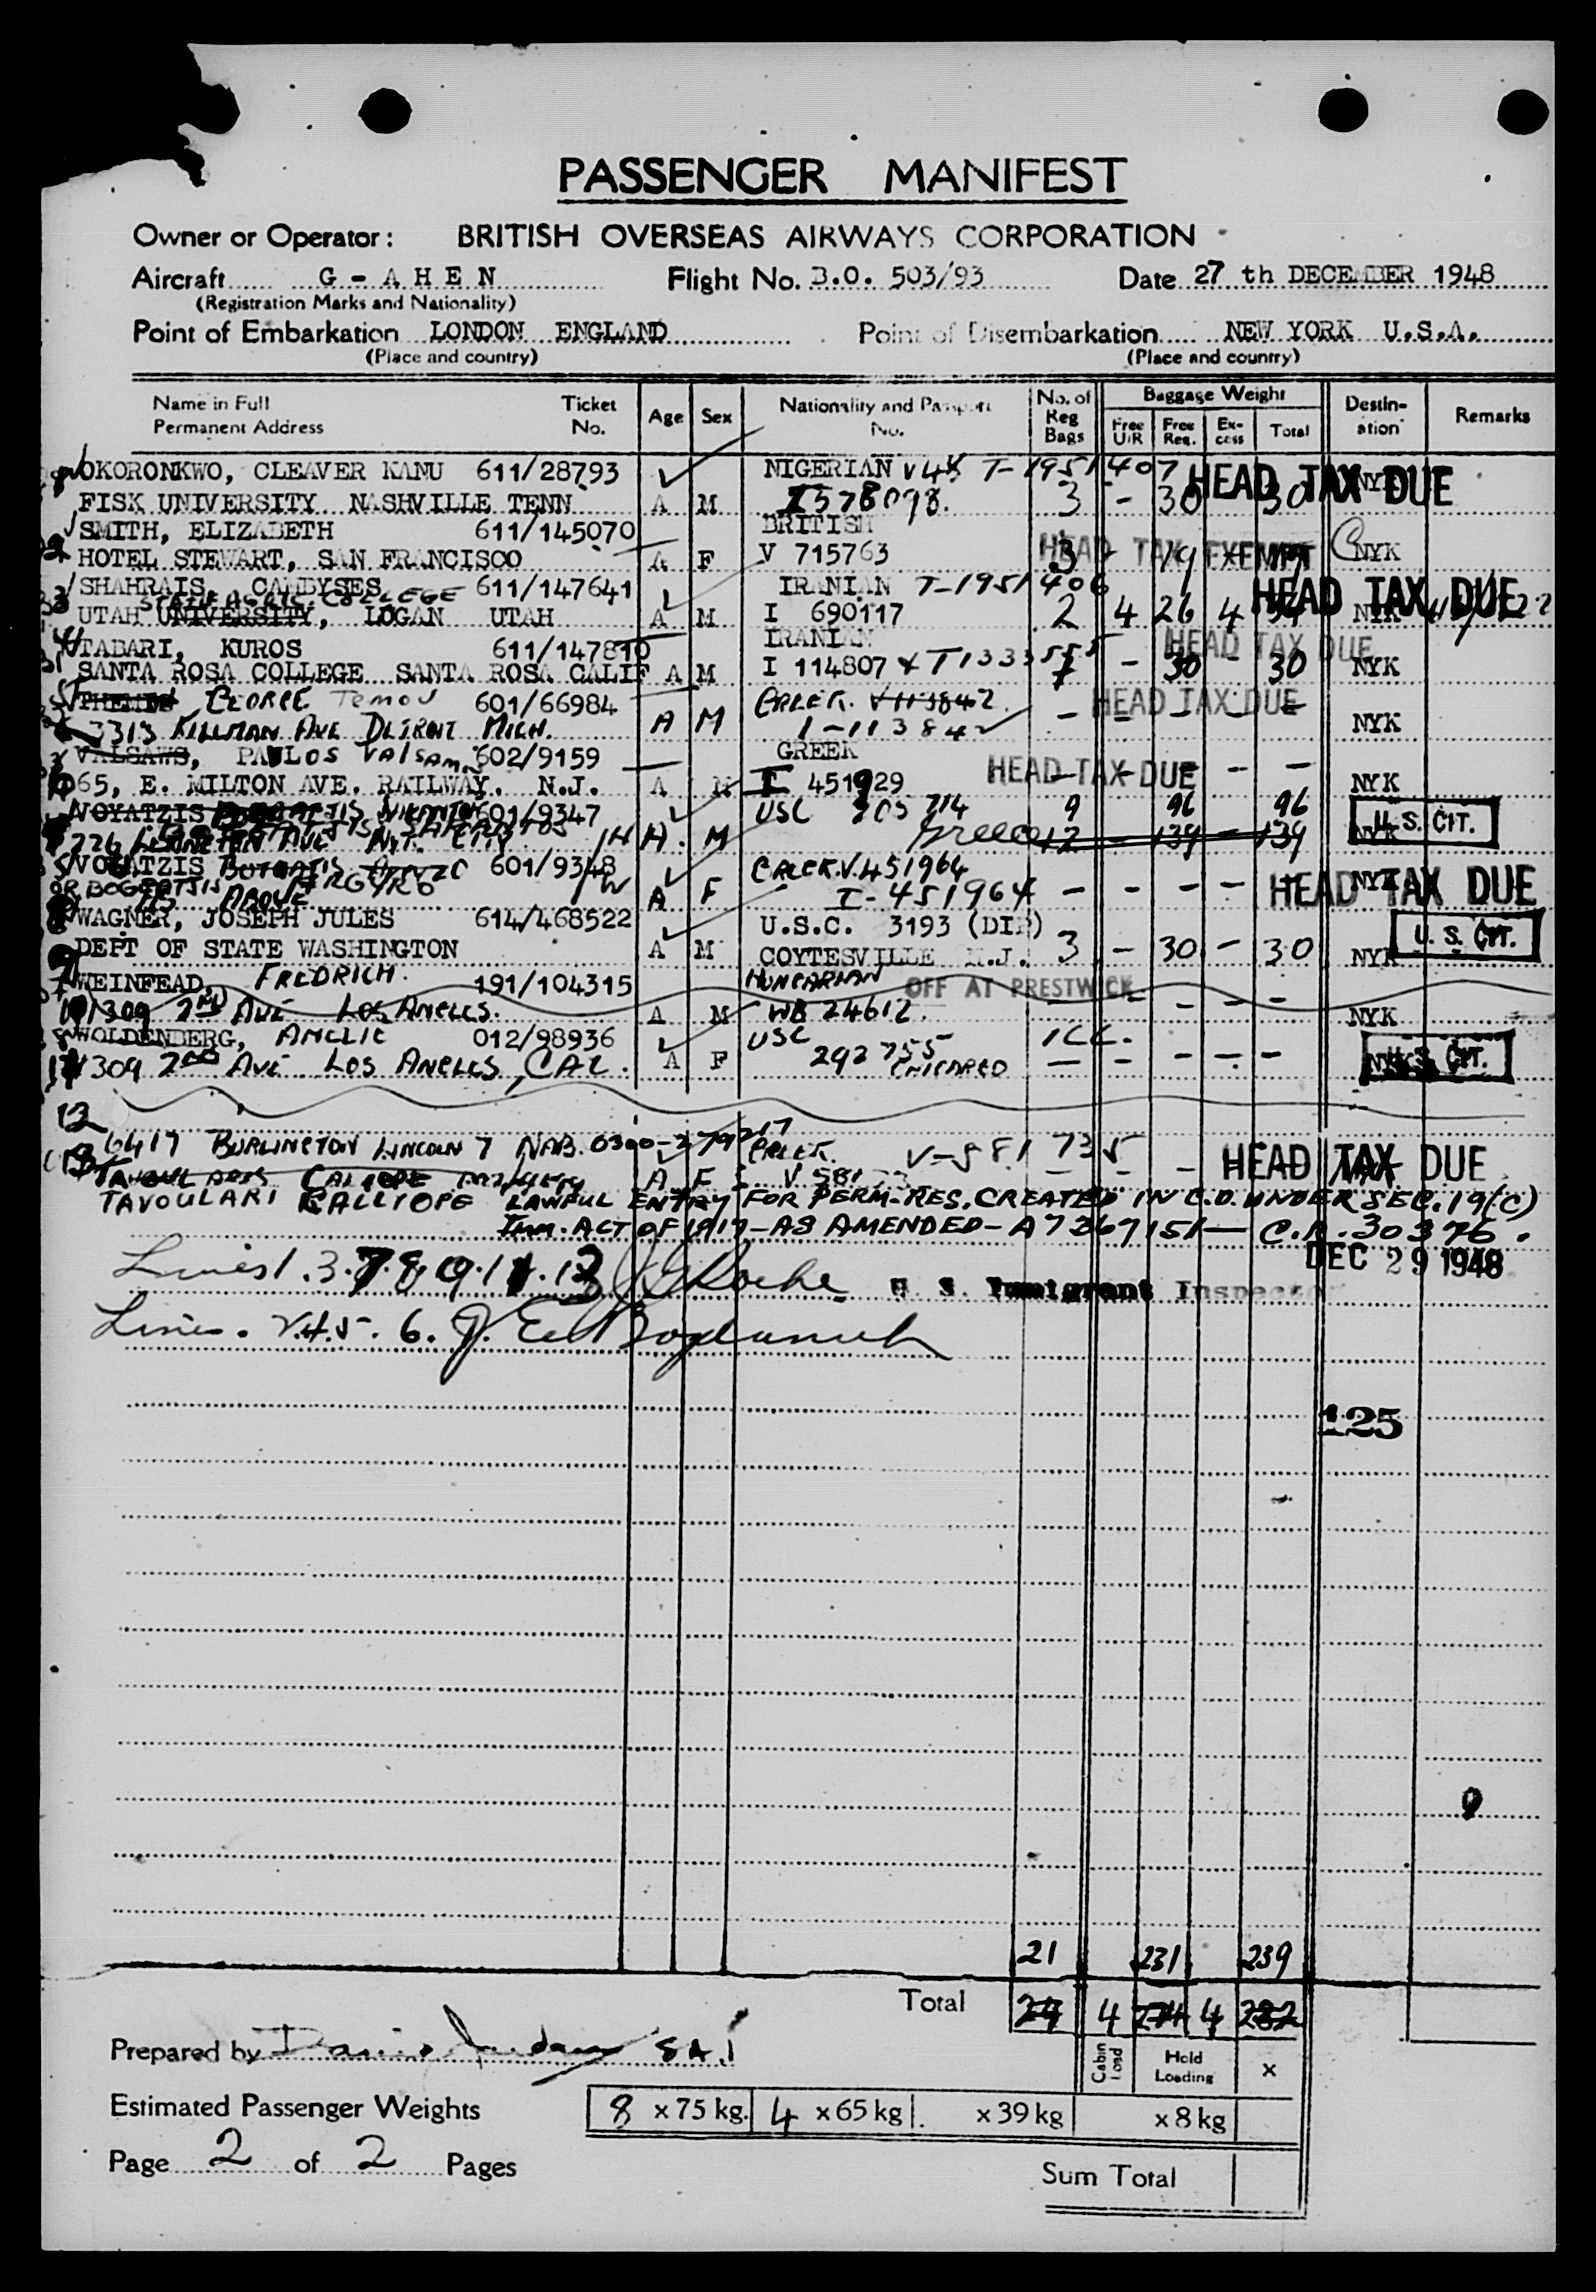 PASSENGER MANIFEST
Owner or Operator: BRITISH OVERSEAS AIRWAYS CORPORATION
Aircraft G - A H E N Flight No. B.O. 503/93 Date 27 th DECEMBER 1948
(Registration Marks and Nationality)
Point of Embarkation LONDON ENGLAND Point of Disembarkation NEW YORK U.S.A.
(Place and country) (Place and country)
Name in Full Ticket Age Sex Nationality and Passport No. of Baggage Weight Destin- Remarks
Permanent Address No. No. Reg Bags Free U/R Free Reg. Ex-cess Total ation
OKORONKWO, CLEAVER KANU 611/28793 NIGERIAN T-1951407 HEAD TAX DUE
FISK UNIVERSITY NASHVILLE TENN. A M I578098. 3 - 30 30 NYK
SMITH, ELIZABETH 611/145070 BRITISH
HOTEL STEWART, SAN FRANCISCO A F V 715763 3 - 19 - 19 HEAD TAX EXEMPT NYK
SHAHRAIS, CAMBYSES 611/147641 IRANIAN T-1951406 HEAD TAX DUE
STATE AGRIC. COLLEGE
UTAH UNIVERSITY, LOGAN UTAH A M I 690117 2 4 26 4 34 NYK
TABARI, KUROS 611/147810 IRANIAN HEAD TAX DUE
SANTA ROSA COLLEGE SANTA ROSA CALIF A M I 114807 T1333555 - 30 - 30 NYK
GEORGE Temou 601/66984 GREEK. V113842 HEAD TAX DUE
3313 KILLMAN AVE DETROIT MICH. A M I-113842 - - - - - NYK
VALSAWS, PAVLOS Valsam 602/9159 GREEK HEAD TAX DUE
65, E. MILTON AVE. RAILWAY. N.J. A M I 451929 - - - - NYK
NOYATZIS 601/9347 USC 203 714 9 96 96 U.S. CIT.
226 LEXINGTON AVE N.Y. CITY 1H A. M Greece 12 - 139 - 139 NYK
NOYATZIS 601/9348 GREEK.V.451964
OR BOGEATJIS ARGYRO 1W A F I-451964 - - - - - NYK HEAD TAX DUE
AS ABOVE
WAGNER, JOSEPH JULES 614/468522 U.S.C. 3193 (DIP) U. S. CIT.
DEPT OF STATE WASHINGTON A M COYTESVILLE N.J. 3 - 30 - 30 NYK
WEINFEAD, FREDRICH. 191/104315 HUNGARIAN OFF AT PRESTWICK
1309 2ND AVE LOS ANGELES. A M WB 24612. - - - - - NYK
WOLDENBERG, AMELIE 012/98936 USC ICC.
1309 2ND AVE LOS ANGELES, CAL. A F 292755 CHICAGO - - - - - NYK U.S. CIT.
12
6417 BURLINGTON LINCOLN 7 NAB. 0300-279217 GREEK. V-581735
CALIOPE A F V 581 - - - HEAD TAX DUE
TAVOULARI CALLIOPE LAWFUL ENTRY FOR PERM-RES. CREATED IN C.O. UNDER SEC. 19(C)
IMM. ACT OF 1917-AS AMENDED-A7367151- C.R. 30376.
DEC 29 1948
Lines 1.3.7.8.9.11.13 Roche U. S. Immigrant Inspector
Lines. 2.4.5. 6. J. Ed
125
21 231 239
Total 24 4 274 4 282
Prepared by SA.1 Cabin Load Hold Loading X
Estimated Passenger Weights 8 x 75 kg. 4 x 65 kg . x 39 kg x 8 kg
Page 2 of 2 Pages
Sum Total